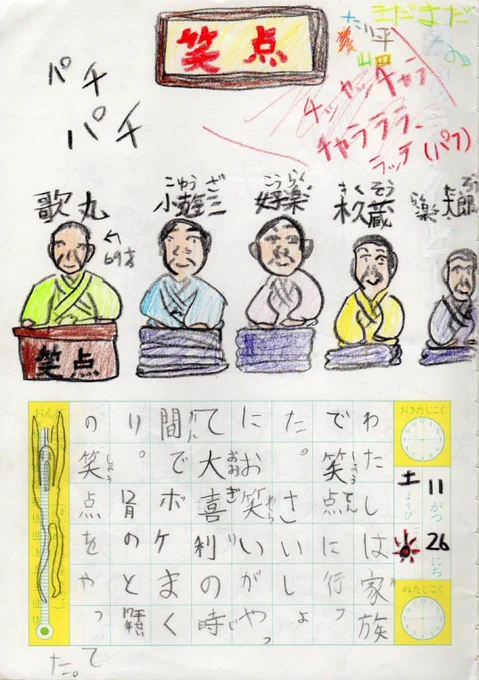 笑点
パチ
パチ
まだまだ
たい平
山田
チャラ
チャラララ、
ラッテ(パフ)
歌丸
69才
こゆうざ
小遊三
こうらく
好楽
きくぞう
木久蔵
楽太郎
笑点
おきたじこく
11がつ
26にち
土ようび
ねたじこく
わたしは家族
で笑点に行っ
た。さいしょ
にお笑いがやっ
て大喜利の時
間でボケまく
り。
の笑点をやっ
た。